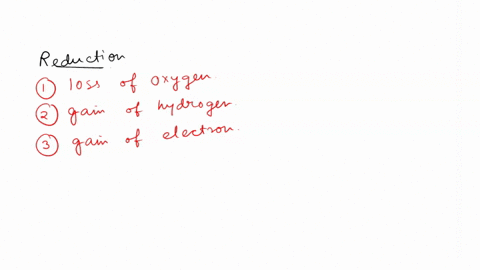 Reduction
① loss of oxygen.
② gain of hydrogen.
③ gain of electron.